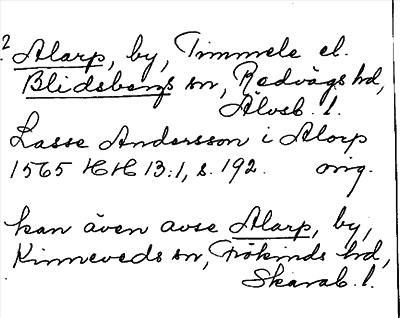 ? Alarp, by, Timmele el.
Blidsbergs sn, Redvägs hd,
Älvsb. l.
Lasse Andersson i Alorp
1565 HH 13:1, s. 192. orig.
kan även avse Alarp, by,
Kinneveds sn, Frökinds hd,
Skarab. l.